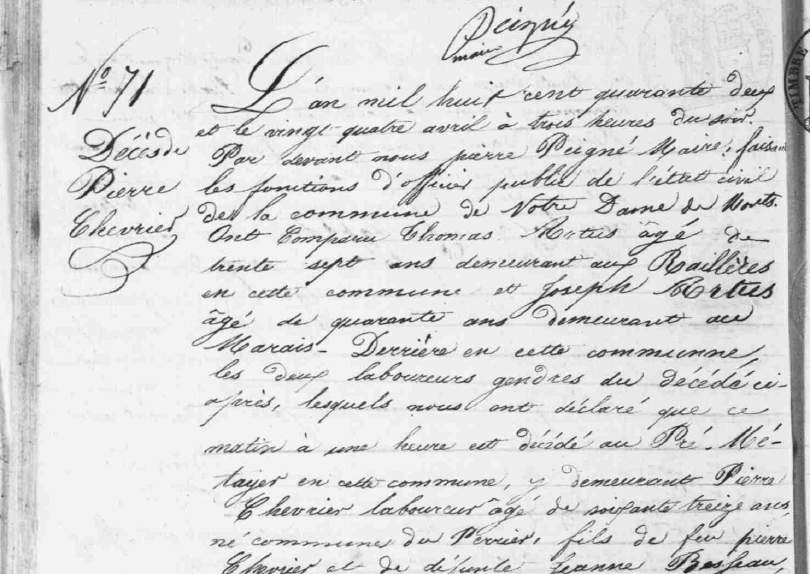 Peigné
maire
N° 71
Décès de
Pierre
Chevrier
L'an mil huit cent quarante deux
et le vingt quatre avril à trois heures du soir.
Par devant nous pierre Peigné Maire, faisan
les fonctions d'officier public de l'état civil
de la commune de Notre Dame de Monts.
Ont Comparu Thomas Artus âgé de
trente sept ans demeurant aux Raillères
en cette commune et Joseph Artus
âgé de quarante ans demeurant au
Marais-Derrière en cette commune,
les deux laboureurs gendres du décédé ci-
après, lesquels nous ont déclaré que ce
matin à une heure est décédé au Pré-Mé-
tayer en cette commune, y demeurant Pierre
Chevrier laboureur âgé de soixante treize ans
né commune du Perrier, fils de feu pierre
Chevrier et de défunte Jeanne Besseau,
TIMBRE